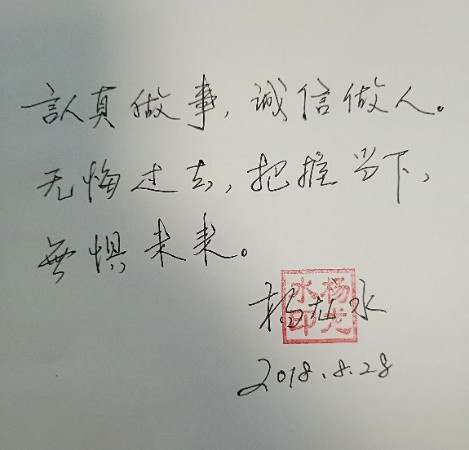 认真做事，诚信做人。
无悔过去，把握当下，
無惧未来。
杨龙水
杨龙水印
2018.8.28